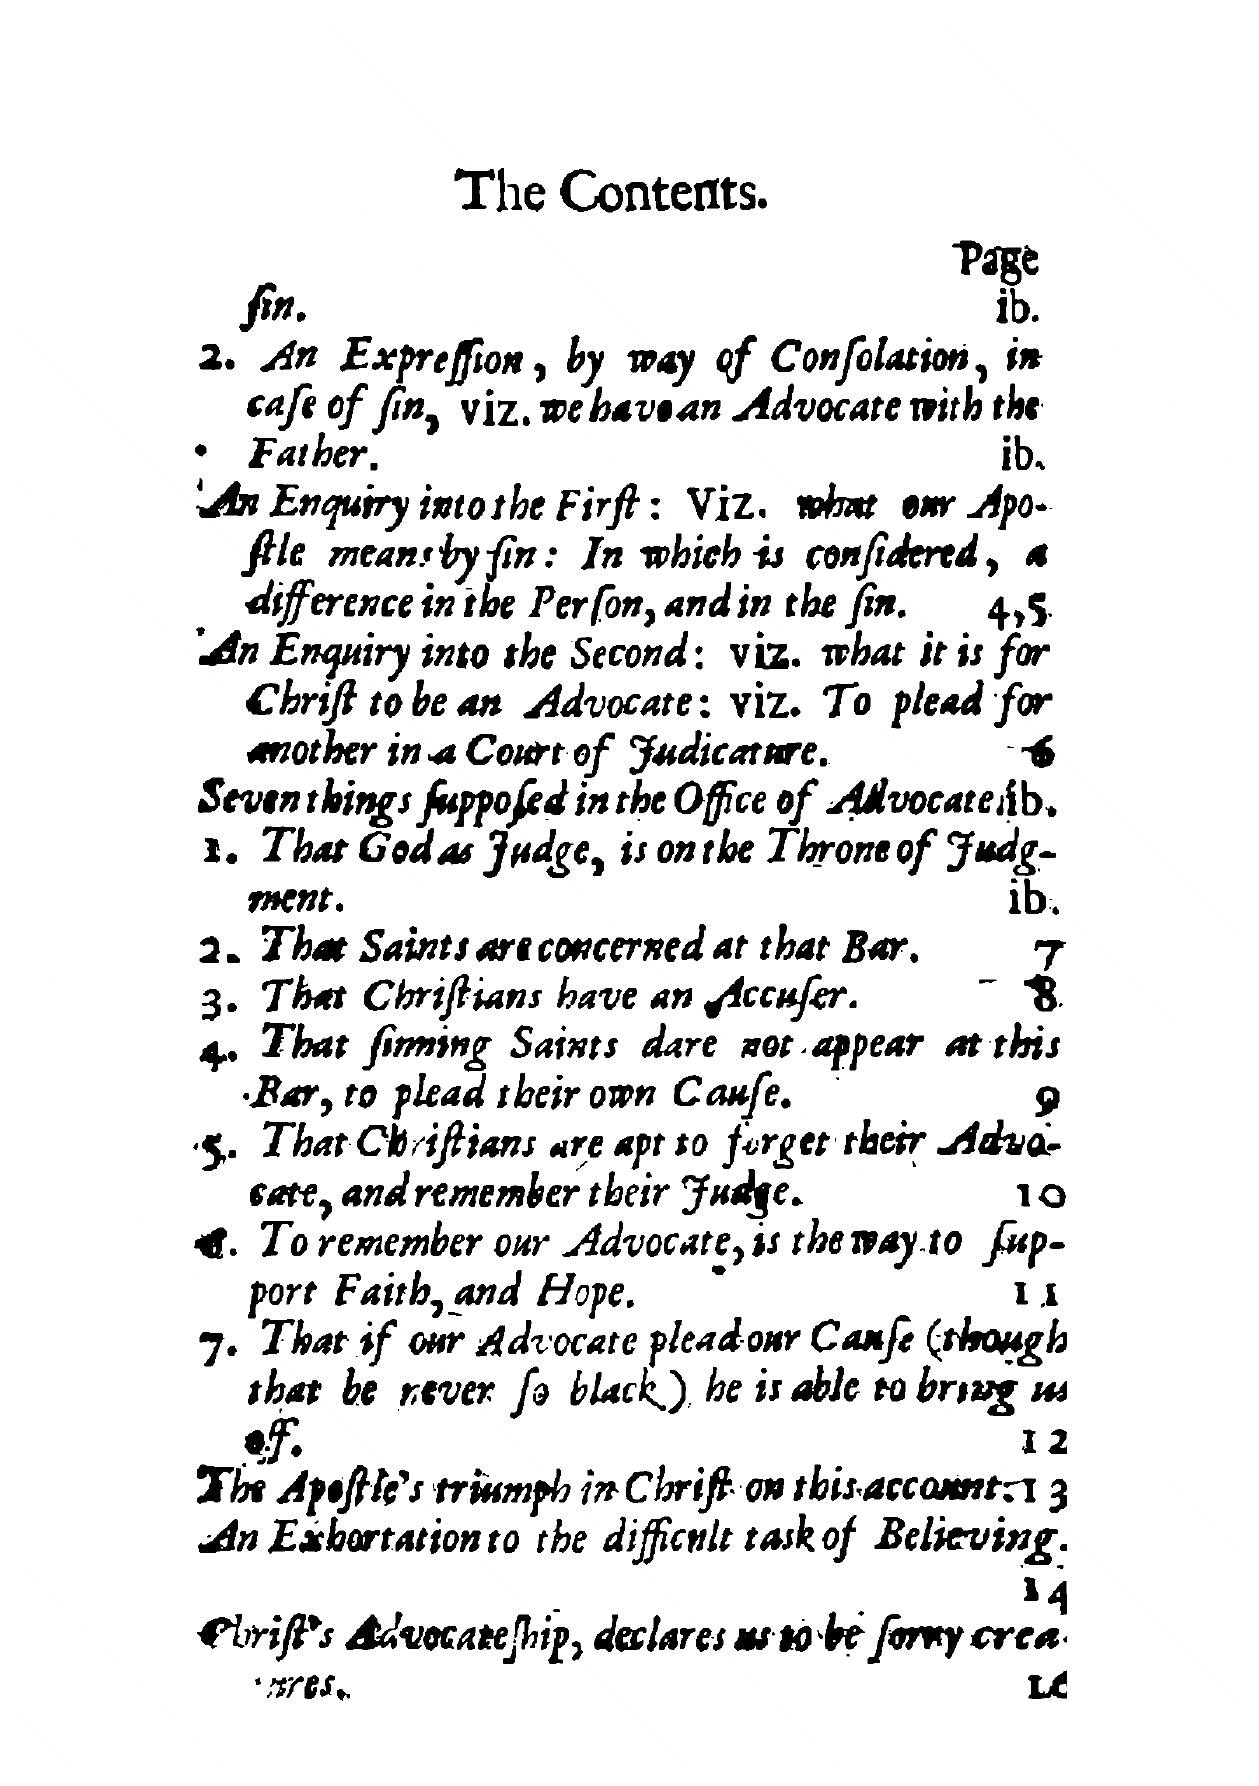 The Contents.
Page
ſin. ib.
2. An Expreſſion, by way of Conſolation, in
caſe of ſin, viz. we have an Advocate with the
Father. ib.
An Enquiry into the Firſt: Viz. what our Apo-
ſtle means by ſin: In which is conſidered, a
difference in the Perſon, and in the ſin. 4,5.
An Enquiry into the Second: viz. what it is for
Chriſt to be an Advocate: viz. To plead for
another in a Court of Judicature. 6
Seven things ſuppoſed in the Office of Advocate ib.
1. That God as Judge, is on the Throne of Judg-
ment. ib.
2. That Saints are concerned at that Bar. 7
3. That Chriſtians have an Accuſer. 8.
4. That ſinning Saints dare not appear at this
Bar, to plead their own Cauſe. 9
5. That Chriſtians are apt to forget their Advo-
cate, and remember their Judge. 10
6. To remember our Advocate, is the way to ſup-
port Faith, and Hope. 11
7. That if our Advocate plead our Cauſe (though
that be never ſo black) he is able to bring us
off. 12
The Apoſtle's triumph in Chriſt on this account. 13
An Exhortation to the difficult task of Believing.
14
Chriſt's Advocateſhip, declares us to be ſorry crea-